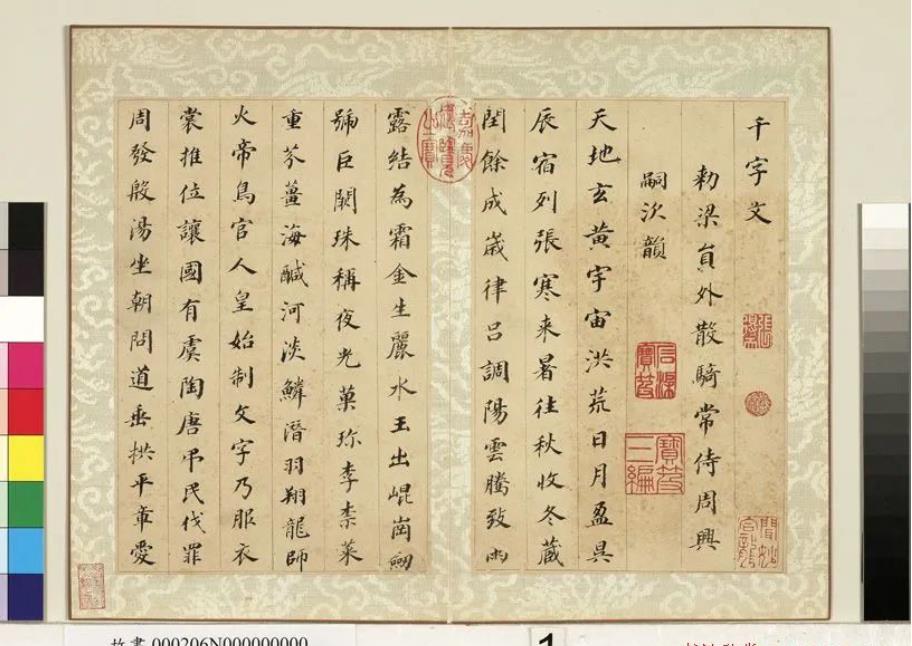 千字文
勑梁員外散騎常侍周興
嗣次韻
天地玄黃宇宙洪荒日月盈昃
辰宿列張寒來暑往秋收冬藏
閏餘成歲律呂調陽雲騰致雨
露結為霜金生麗水玉出崐崗劒
號巨闕珠稱夜光菓珍李柰菜
重芥薑海醎河淡鱗潛羽翔龍師
火帝鳥官人皇始制文字乃服衣
裳推位讓國有虞陶唐弔民伐罪
周發殷湯坐朝問道垂拱平章愛
石渠寶笈
寶笈三編
嘉慶御覽之寶
故書 000206N000000000
1